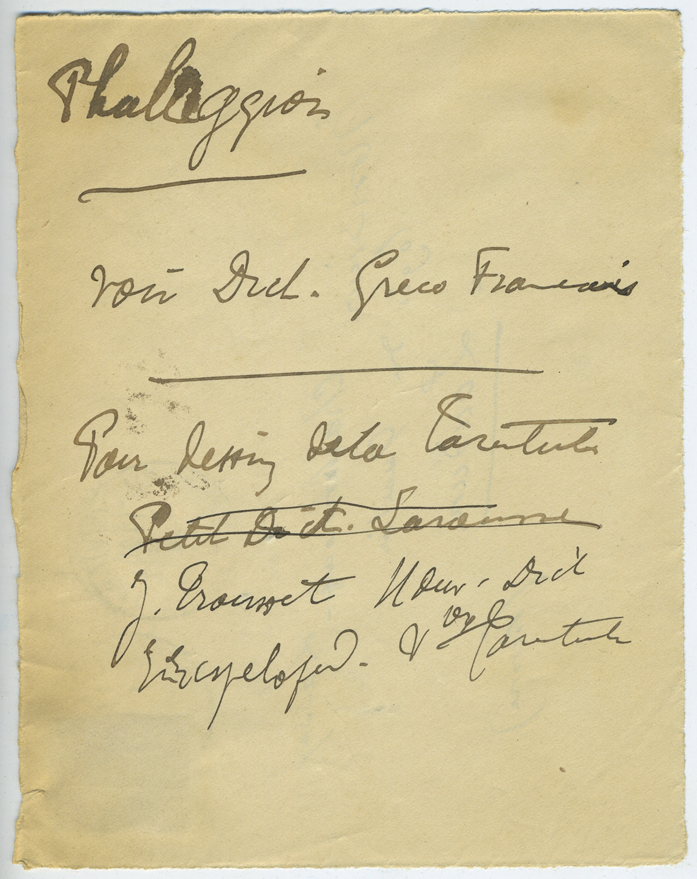 voir Dict. Greco Francais
Pour dessin de la Tarentule
Petit Dict. Larousse
J. Trousset Nouv. Dict
Encycloped. Vº Tarentule